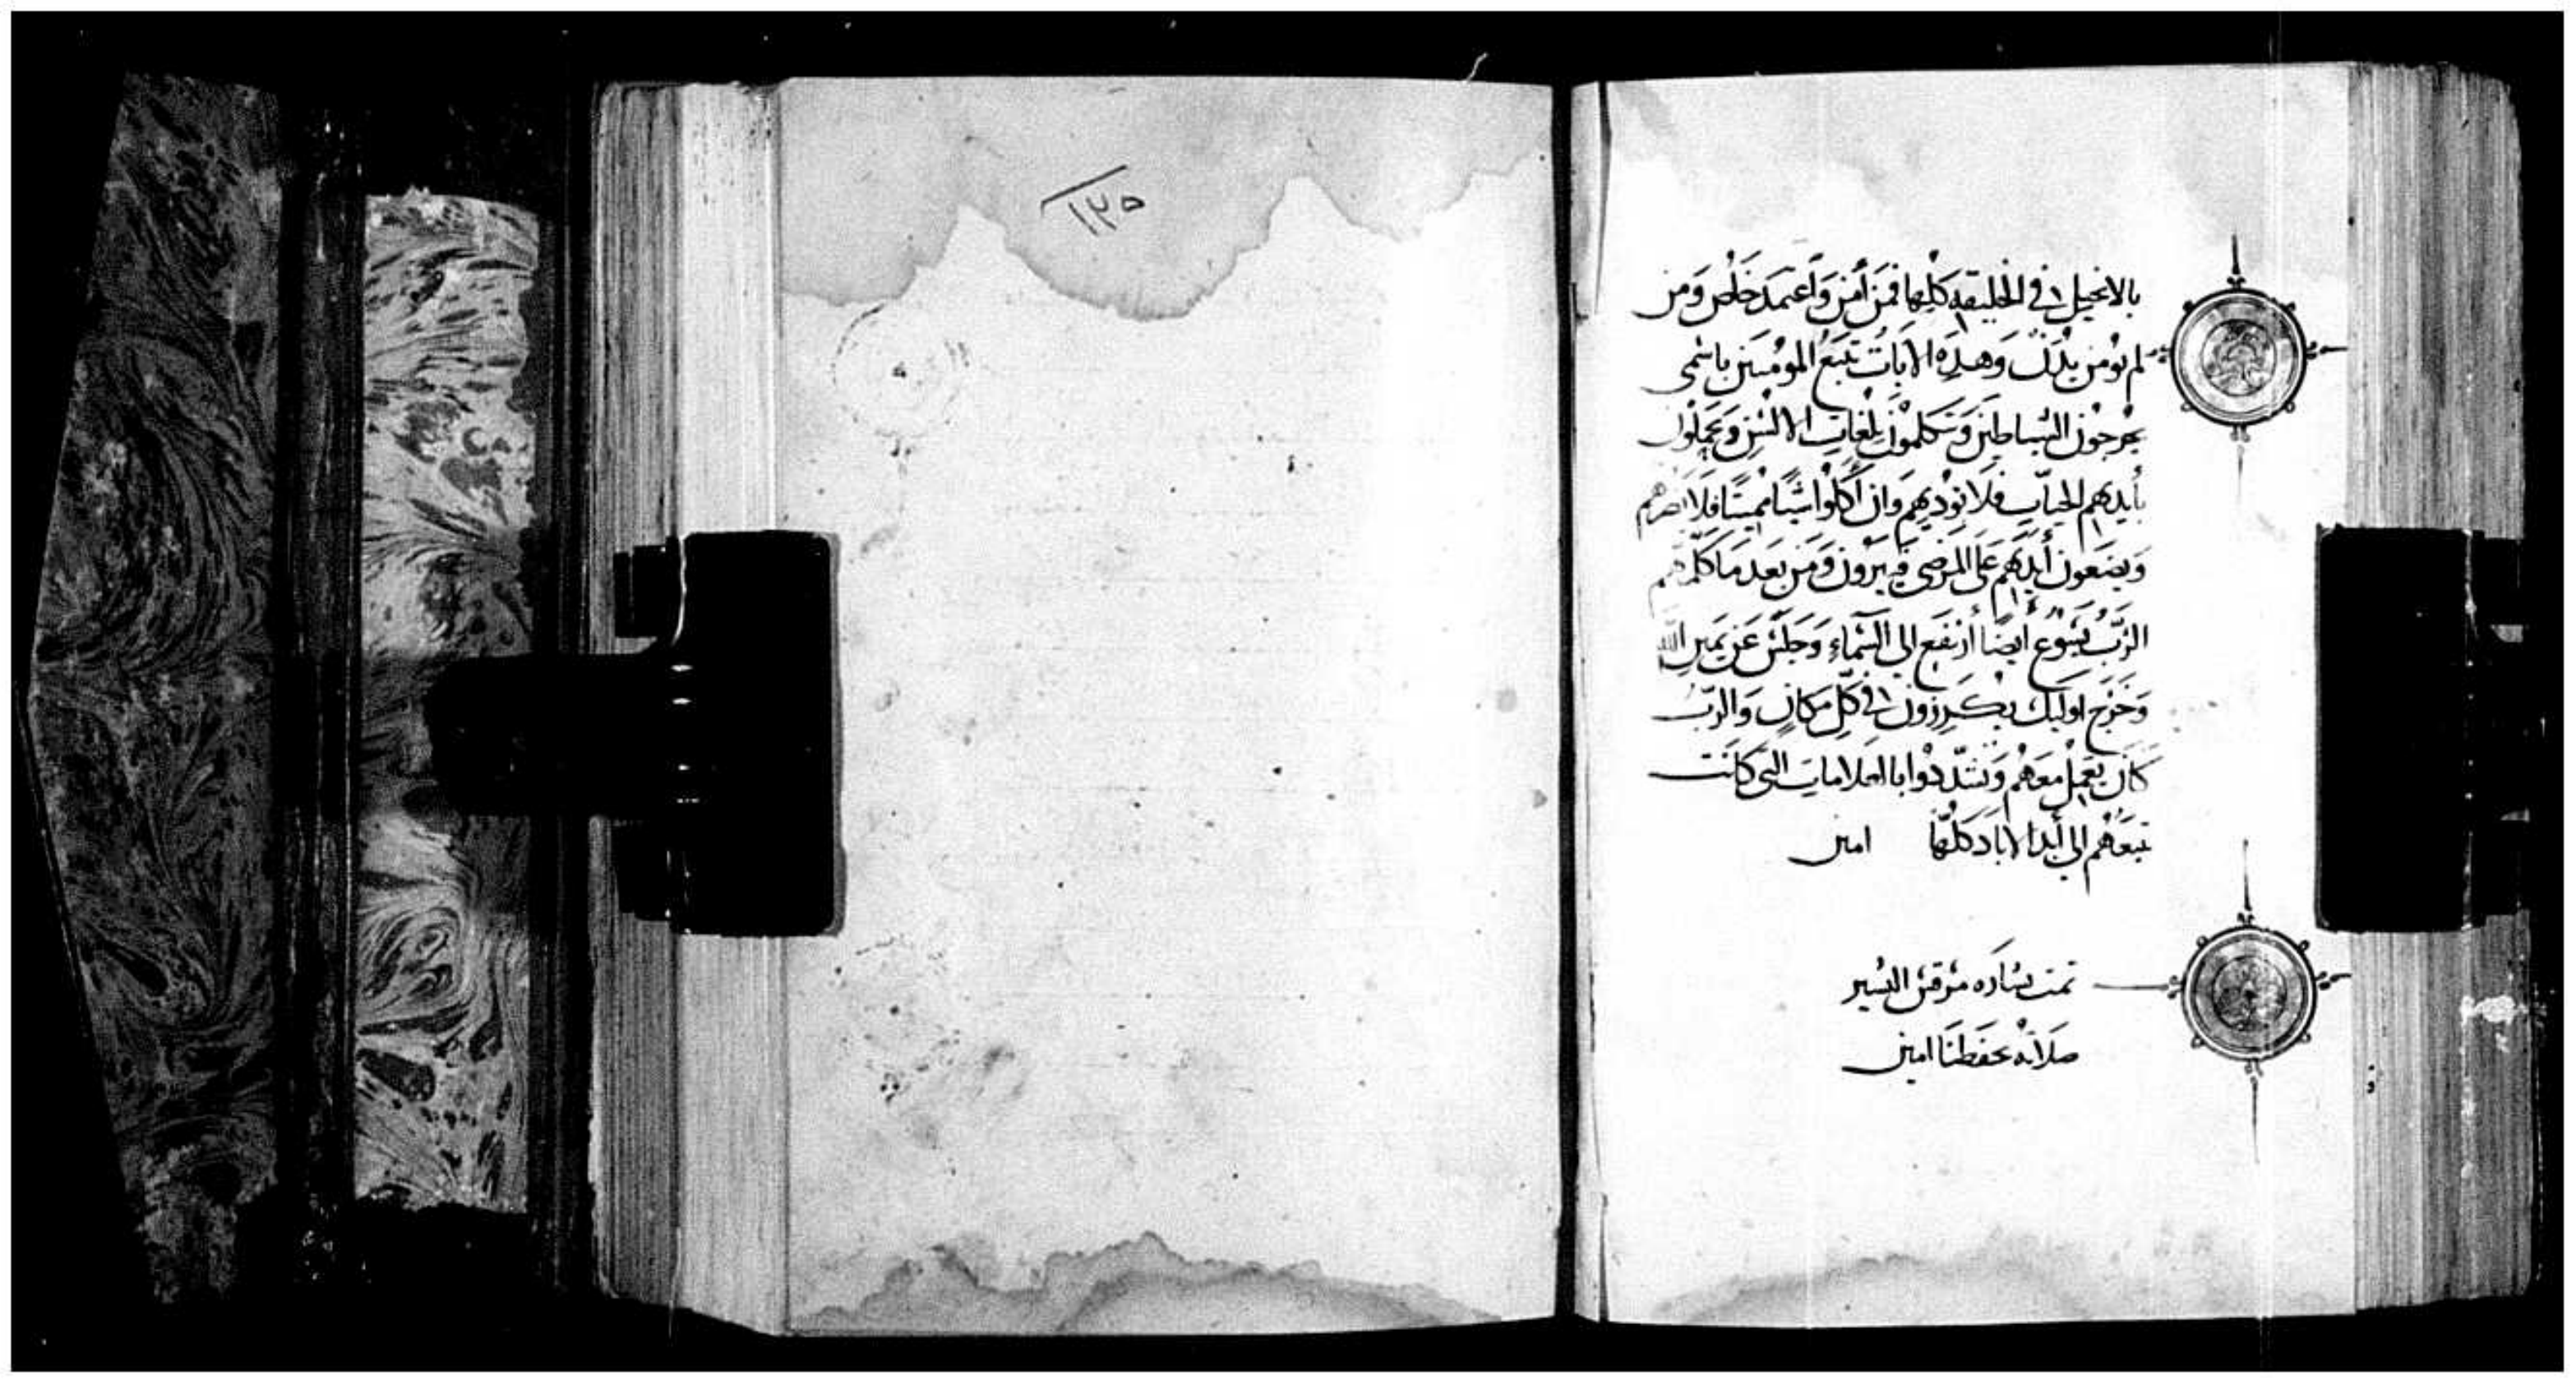 بالانجيل في الخليقه كلها فمن أمن وَأعتمدَ خَلص وَمن
لم يومن يدان وَهدِه الايات تتبَعُ المومنين باسمي
يخرجون الشياطين وَيتكلمون بلغات الالسُن وَيحملون
بأيديهم الحيات فلا توديهم وان أكلوا شيًا مميتًا فلا
وَيضعون أيديهم عَلى المرضى فيبرون وَمن بَعد مَا كلمهم
الرَّب يَسُوع ايضًا أرتفع الى السّماءِ وَجلسَ عَن يَمين الله
وَخرج اوليك يكرزون في كل مَكانٍ وَالربّ
كان يَعمل معَهم وَتشدّدوا بالعلامات التي كانت
تتبعَهم الى أبد الاباد كلها امين
تمت بشاره مرقس البشير
صلاته تحفظنا امين
١٣٥